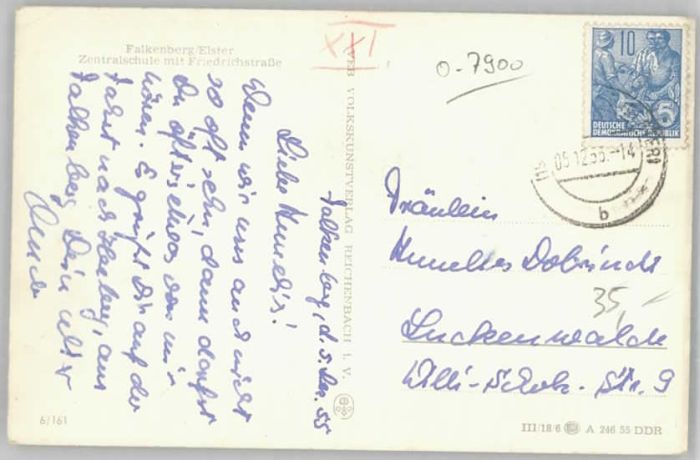 Falkenberg/Elster
Zentralschule mit Friedrichstraße
XXI
0-7900
10
5
DEUTSCHE
DEMOKRATISCHE REPUBLIK
05.12.55.-14
b
VEB VOLKSKUNSTVERLAG REICHENBACH i. V.
Falkenberg, d. 5. Dez. 55
Liebe
Wenn wir uns auch nicht
so oft sehn, dann darfst
Du öfters etwas von mir
hören. Es grüßt Dich auf der
Fahrt nach aus
Falkenberg Dein
Fräulein
Dobrindt
Luckenwalde
35,-
Str. 9
6/161
III/18/6 A 246 55 DDR